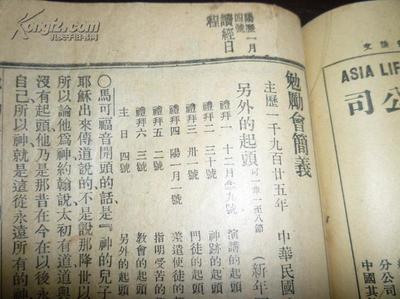 ASIA LIF
司
公
分公司
中國其
陽歷一月
四號
讀經日
程
勉勵會簡義
主歷一千九百廿五年 中華民國
另外的起頭 可一章一至八節 (新年
禮拜一 十二月廿九號 演講的起頭
禮拜二 三十號 神跡的起頭
禮拜三 卅一號 門徒的起頭
禮拜四 陽一月一號 差遣使徒的起
禮拜五 二號 指明受苦的
禮拜六 三號 教會的起頭
主日 四號 另外的起頭
〇馬可福音開頭的話是『神的兒子
耶穌出來傳道說的、不是設那降世以
所以論他為神約翰說太初有道道
沒有起頭他乃是那昔在今在以後永
自己所以神就是這從永遠所有的神